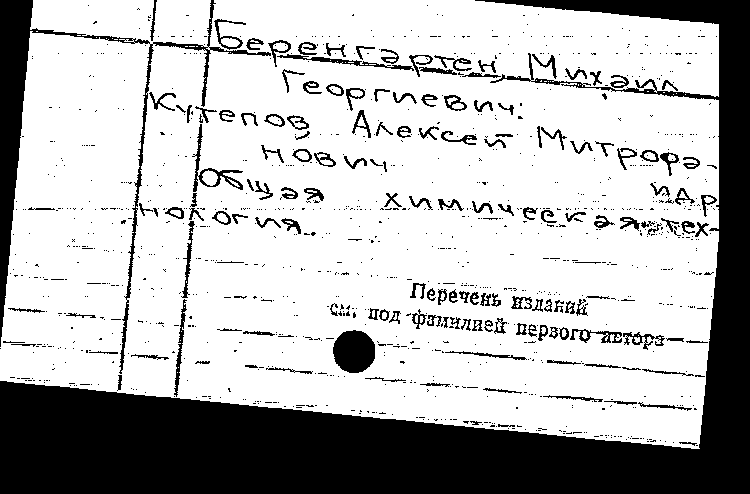 Беренгартен, Михаил
Георгиевич.
Кутепов Алексей Митрофа-
нович и др.
Общая химическая тех-
нология.
Перечень изданий
см. под фамилией первого автора